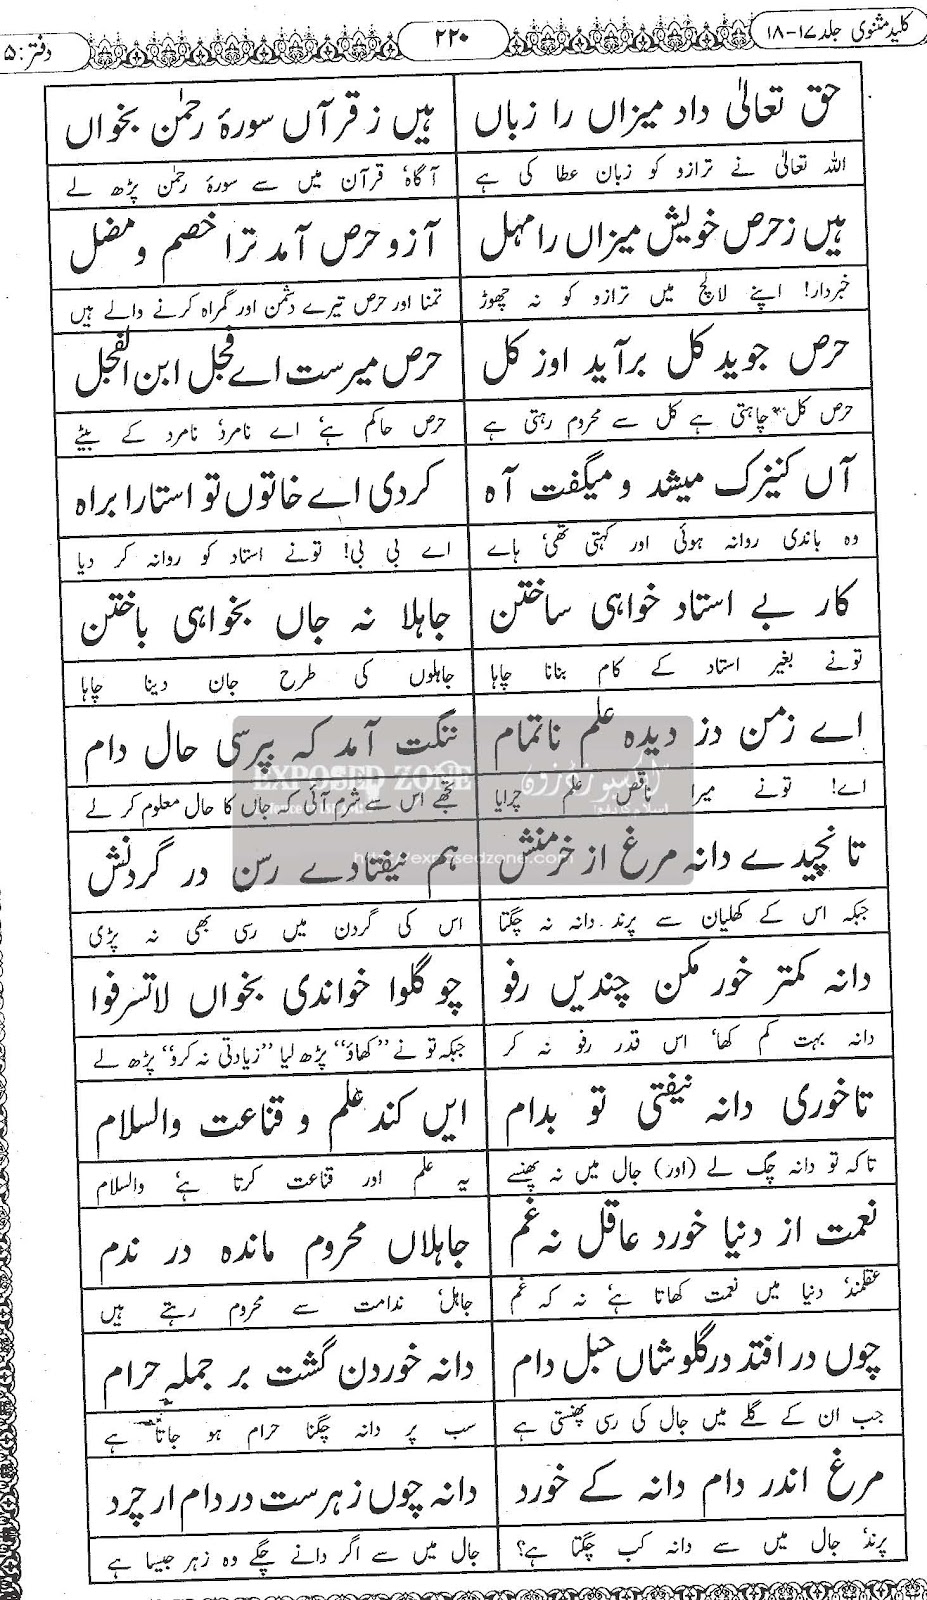 کلید مثنوی جلد ۱۷-۱۸ ۲۲۰ دفتر: ۵
حق تعالیٰ داد میزاں را زباں ہیں ز قرآں سورۂ رحمٰن بخواں
اللہ تعالیٰ نے ترازو کو زبان عطا کی ہے آگاہ، قرآن میں سے سورۂ رحمٰن پڑھ لے
ہیں ز حرص خویش میزاں را مہل آز و حرص آمد ترا خصم و مضل
خبردار! اپنے لالچ میں ترازو کو نہ چھوڑ تمنا اور حرص تیرے دشمن اور گمراہ کرنے والے ہیں
حرص جوید کل برآید او ز کل حرص میرست اے فجل ابن الفجل
حرص کل چاہتی ہے کل سے محروم رہتی ہے حرص حاکم ہے، اے نامرد، نامرد کے بیٹے
آں کنیزک میشد و میگفت آہ کردی اے خاتوں تو استا را براہ
وہ باندی روانہ ہوئی اور کہتی تھی، ہائے اے بی بی! تونے استاد کو روانہ کر دیا
کار بے استاد خواہی ساختن جاہلا نہ جاں بخواہی باختن
تونے بغیر استاد کے کام بنانا چاہا جاہلوں کی طرح جان دینا چاہا
اے ز من دز دیدہ علم ناتمام ننگت آمد کہ پرسی حال دام
اے! تونے میرا ناقص علم چرایا تجھے اس سے شرم آئی کہ جاں کا حال معلوم کر لے
EXPOSED ZONE ایکسپوزڈ زون
http://exposedzone.com
تا نچیدے دانہ مرغ از خرمنش ہم نیفتادے رسن در گردنش
جبکہ اس کے کھلیان سے پرند دانہ نہ چگتا اس کی گردن میں رسی بھی نہ پڑی
دانہ کمتر خور مکن چندیں رفو چو کلوا خواندی بخواں لاتسرفوا
دانہ بہت کم کھا، اس قدر رفو نہ کر جبکہ تو نے "کھاؤ" پڑھ لیا "زیادتی نہ کرو" پڑھ لے
تا خوری دانہ نیفتی تو بدام ایں کند علم و قناعت والسلام
تاکہ تو دانہ چگ لے (اور) جال میں نہ پھنسے یہ علم اور قناعت کرتا ہے، والسلام
نعمت از دنیا خورد عاقل نہ غم جاہلاں محروم ماندہ در ندم
عقلمند، دنیا میں نعمت کھاتا ہے، نہ کہ غم جاہل، ندامت سے محروم رہتے ہیں
چوں در افتد در گلو شاں حبل دام دانہ خوردن گشت بر جملہ حرام
جب ان کے گلے میں جال کی رسی پھنستی ہے سب پر دانہ چگنا حرام ہو جاتا ہے
مرغ اندر دام دانہ کے خورد دانہ چوں زہرست در دام ار چرد
پرند، جال میں سے دانہ کب چگتا ہے؟ جال میں سے اگر دانے چگے وہ زہر جیسا ہے